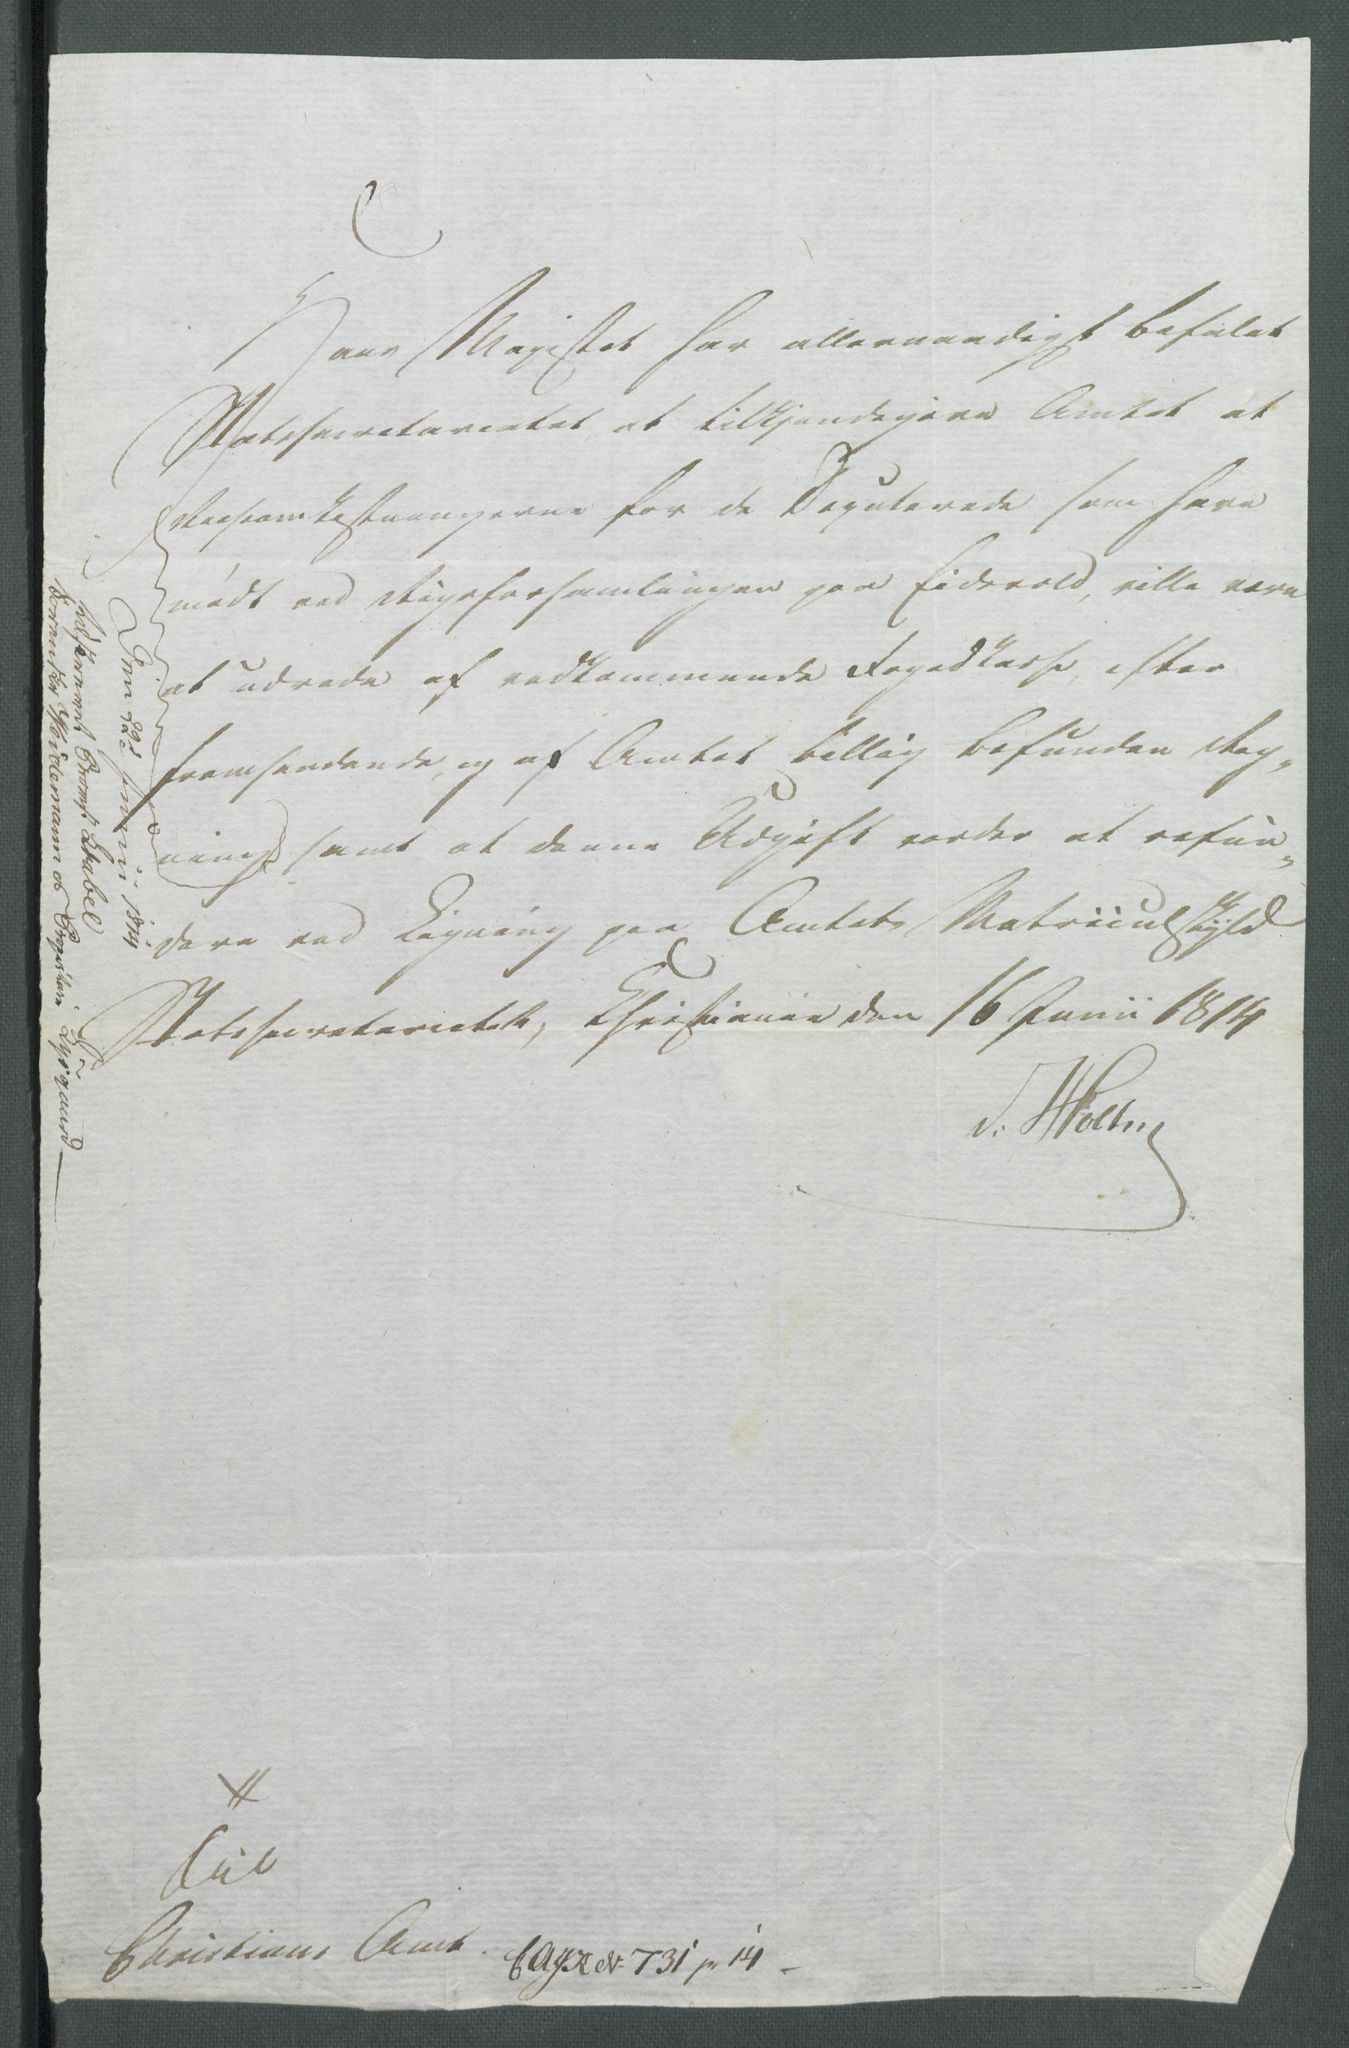 Hans Majestet har allernaadigst befalet
Statssecretariatet at tilkjendegive Amtet at
Reiseomkostningerne for de Deputerede som have
mödt ved Rigsforsamlingen paa Eidsvold, ville være
at udrede af vedkommende Fogedkasse, efter
fremsendende, og af Amtet billig befunden Reg„
ning, samt at denne Udgift vorder at refun„
dere ved Ligning paa Amtets Matricul Skyld
Statssecretariatet, Christiania den 16 Junii 1814
Holten
den 22de Junii 1814
Stabel
Weidemann og Lysgaard
Til
Christians Amt.
No 731 14